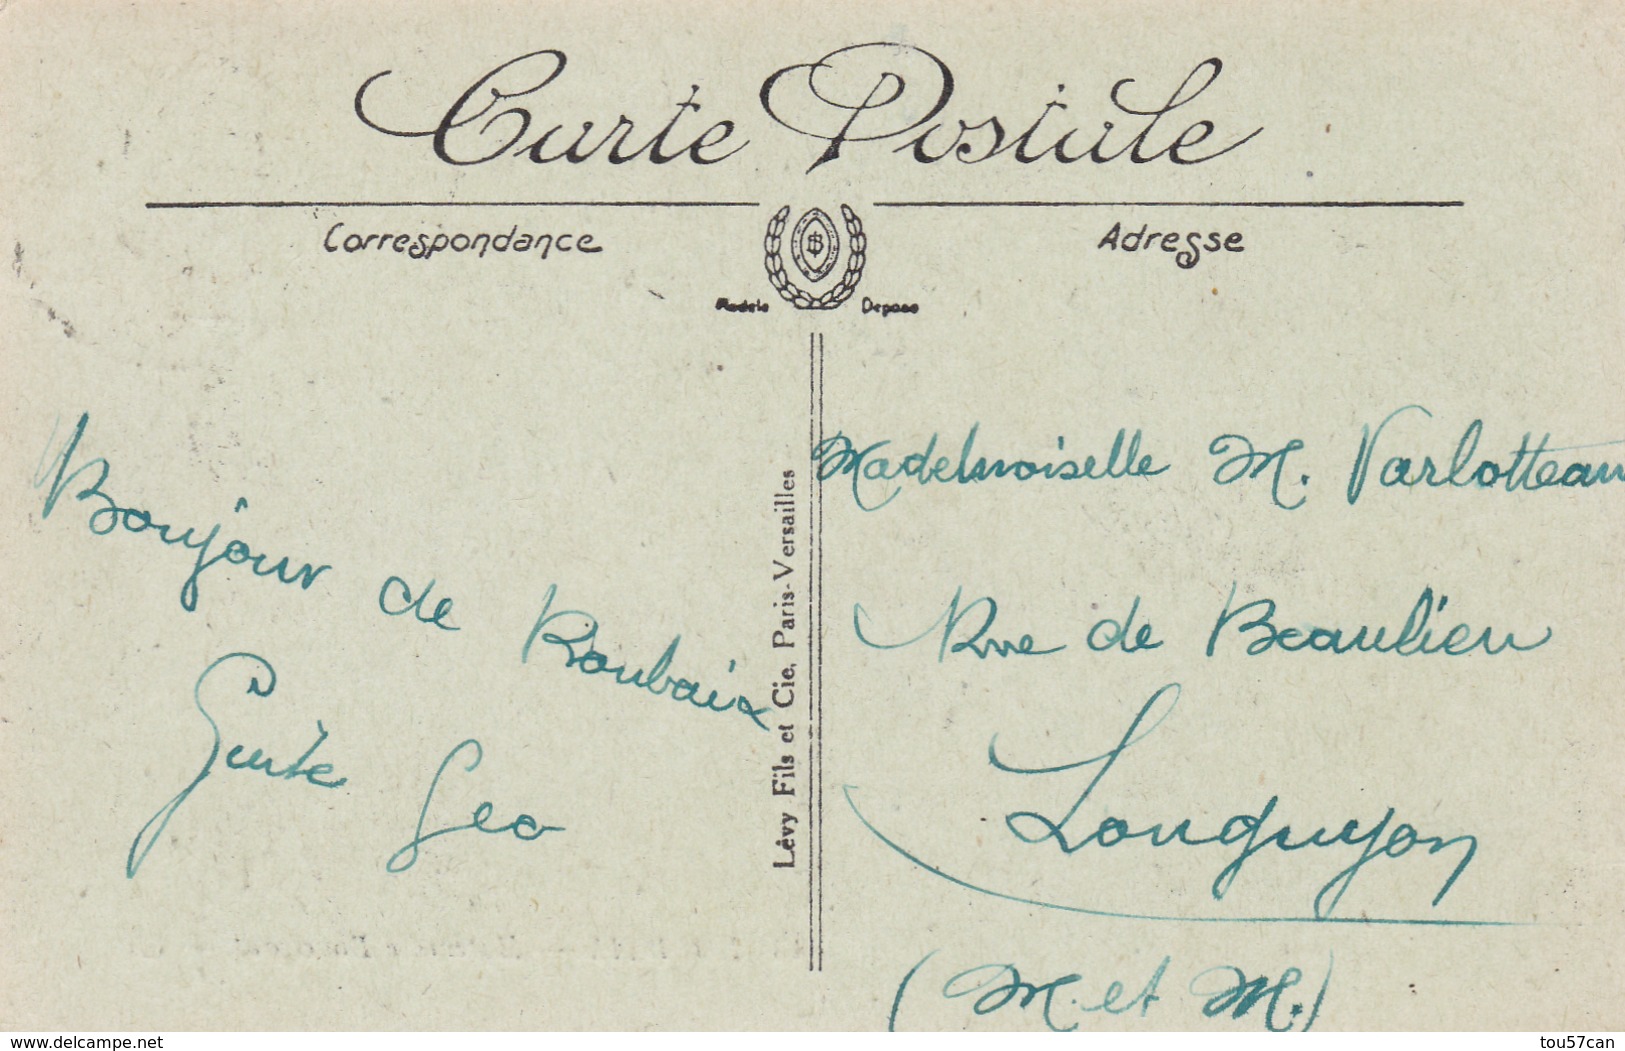 Carte Postale
Correspondance
Adresse
Modele Depose
Bonjour de Roubaix
Guite Geo
Lévy Fils et Cie, Paris-Versailles
Mademoiselle M. Varlotteau
Rue de Beaulieu
Longuyon
(M. et M.)
www.delcampe.net
tou57can